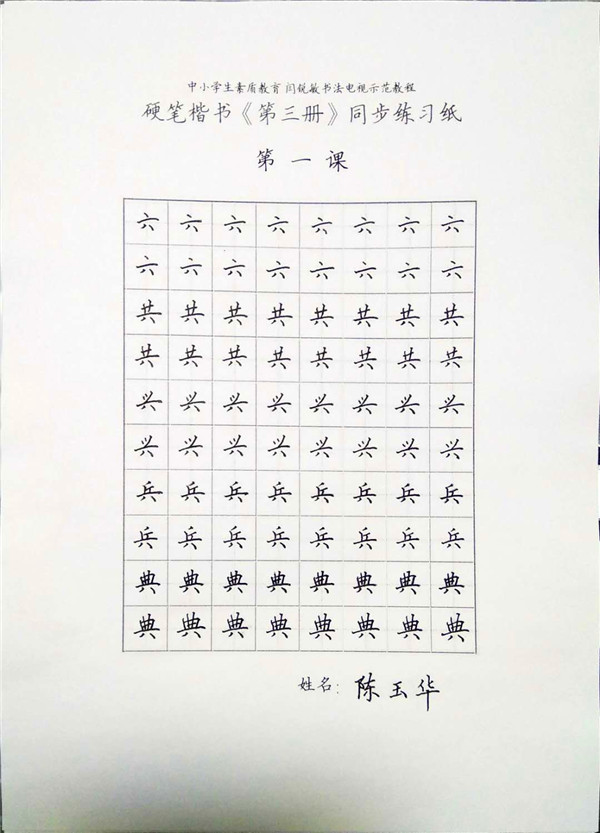 中小学生素质教育 闫锐敏书法电视示范教程
硬笔楷书《第三册》同步练习纸
第一课
六六六六六六六六
六六六六六六六六
共共共共共共共共
共共共共共共共共
兴兴兴兴兴兴兴兴
兴兴兴兴兴兴兴兴
兵兵兵兵兵兵兵兵
兵兵兵兵兵兵兵兵
典典典典典典典典
典典典典典典典典
姓名：陈玉华